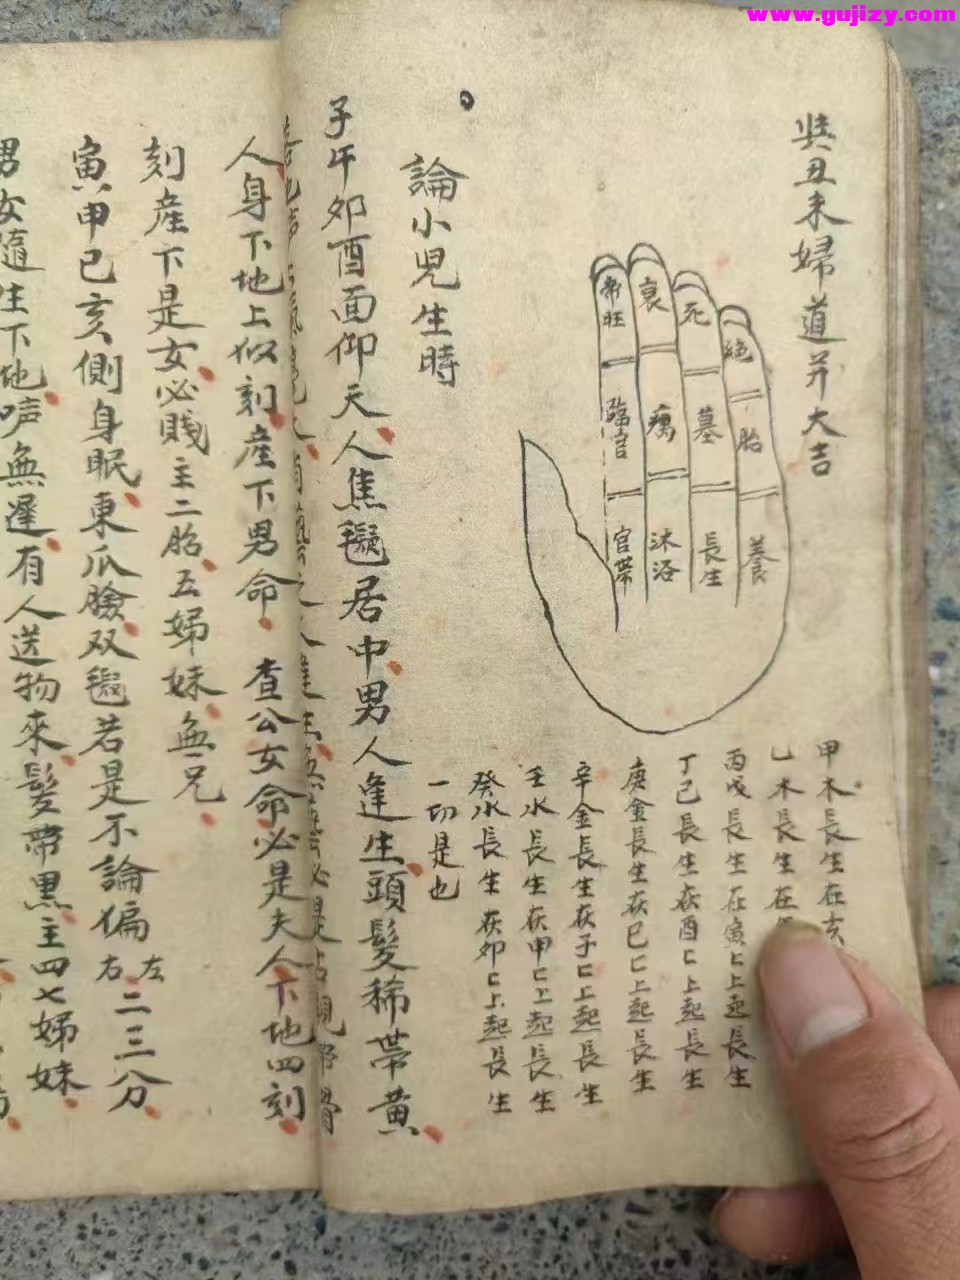 www.gujizy.com
癸丑未婦道并大吉
帝旺
衰
死
絕
臨官
病
墓
胎
官帶
沐浴
長生
養
甲木長生在亥
乙木長生在
丙戊長生在寅亡上起長生
丁己長生在酉亡上起長生
庚金長生在巳亡上起長生
辛金長生在子亡上起長生
壬水長生在申亡上起長生
癸水長生在卯亡上起長生
一切是也
論小兒生時
子午卯酉面仰天人焦毢居中男人逢生頭髮稀帶黃
人身下地上似刻產下男命 查公女命必是夫人下地四刻
刻產下是女必賤主二胎五婦妹無兄
寅申巳亥側身眠東爪臉双毢若是不論偏左右二三分
男女隨生下地声無遲有人送物來髮帶黑主四七婦妹